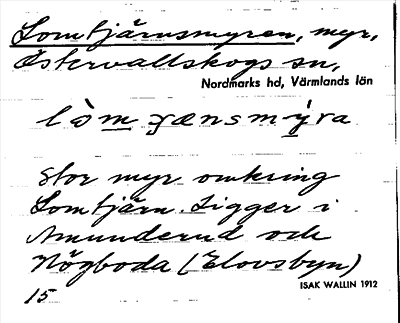 Lomtjärnsmyren, myr,
Östervallskogs sn,
Nordmarks hd, Värmlands län
lòm ɟænsmýra
Stor myr omkring
Lomtjärn. Ligger i
Amunderud och
Högboda (Elovsbyn)
15
ISAK WALLIN 1912